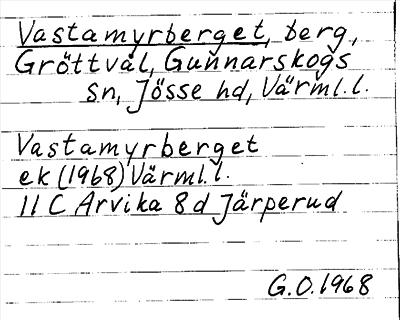 Vastamyrberget, berg,
Gröttvål, Gunnarskogs
sn, Jösse hd, Värml.l.
Vastamyrberget
ek (1968) Värml.l.
11 C Arvika 8 d Järperud
G.O. 1968